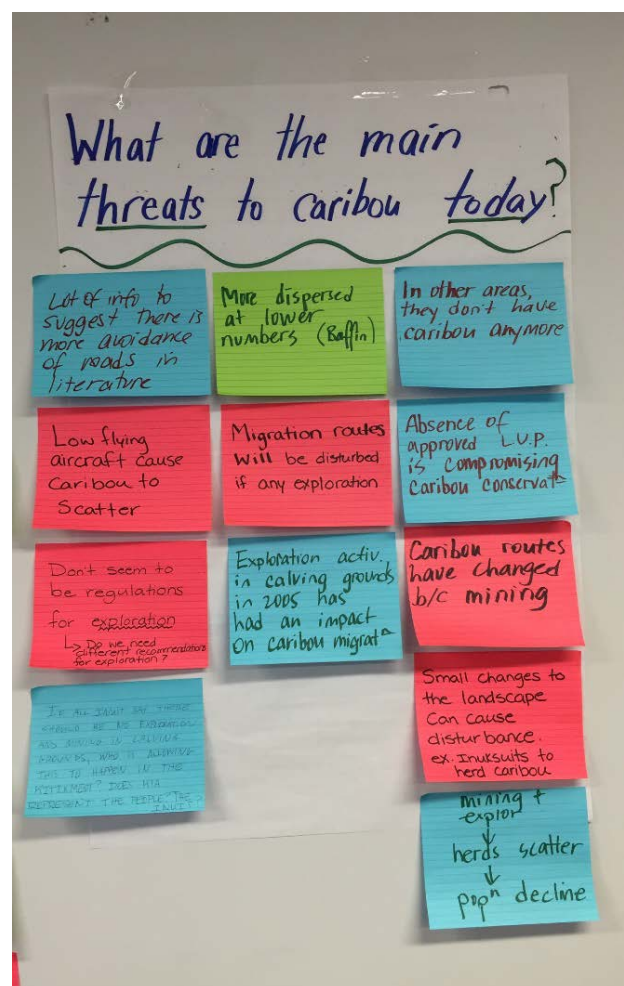 What are the main
threats to caribou today?
Lot of info to
suggest there is
more avoidance
of roads in
literature
Low flying
aircraft cause
Caribou to
Scatter
Don't seem to
be regulations
for exploration
↳ Do we need
different recommendations
for exploration?
IF ALL INUIT SAY THERE
SHOULD BE NO EXPLORATION
AND MINING IN CALVING
GROUNDS, WHO IS ALLOWING
THIS TO HAPPEN IN THE
KITIKMEOT? DOES KIA
REPRESENT THE PEOPLE "THE
INUIT"?
More dispersed
at lower
numbers (Baffin)
Migration routes
Will be disturbed
if any exploration
Exploration activ.
in calving grounds
in 2005 has
had an impact
on caribou migrat
In other areas,
they don't have
caribou anymore
Absence of
approved L.U.P.
is compromising
Caribou conservat
Caribou routes
have changed
b/c mining
Small changes to
the landscape
Can cause
disturbance.
ex. Inuksuits to
herd caribou
mining +
explor
↓
herds scatter
↓
popⁿ decline